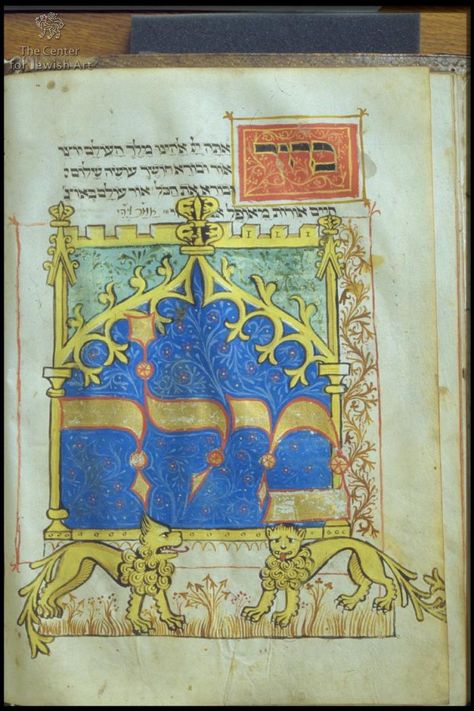 The Center
for Jewish Art
ברוך
אתה יי אלהינו מלך העולם יוצר
אור ובורא חושך עושה שלום
ובורא את הכל אור עולם באוצר
חיים אורות מאופל אמר ויהי